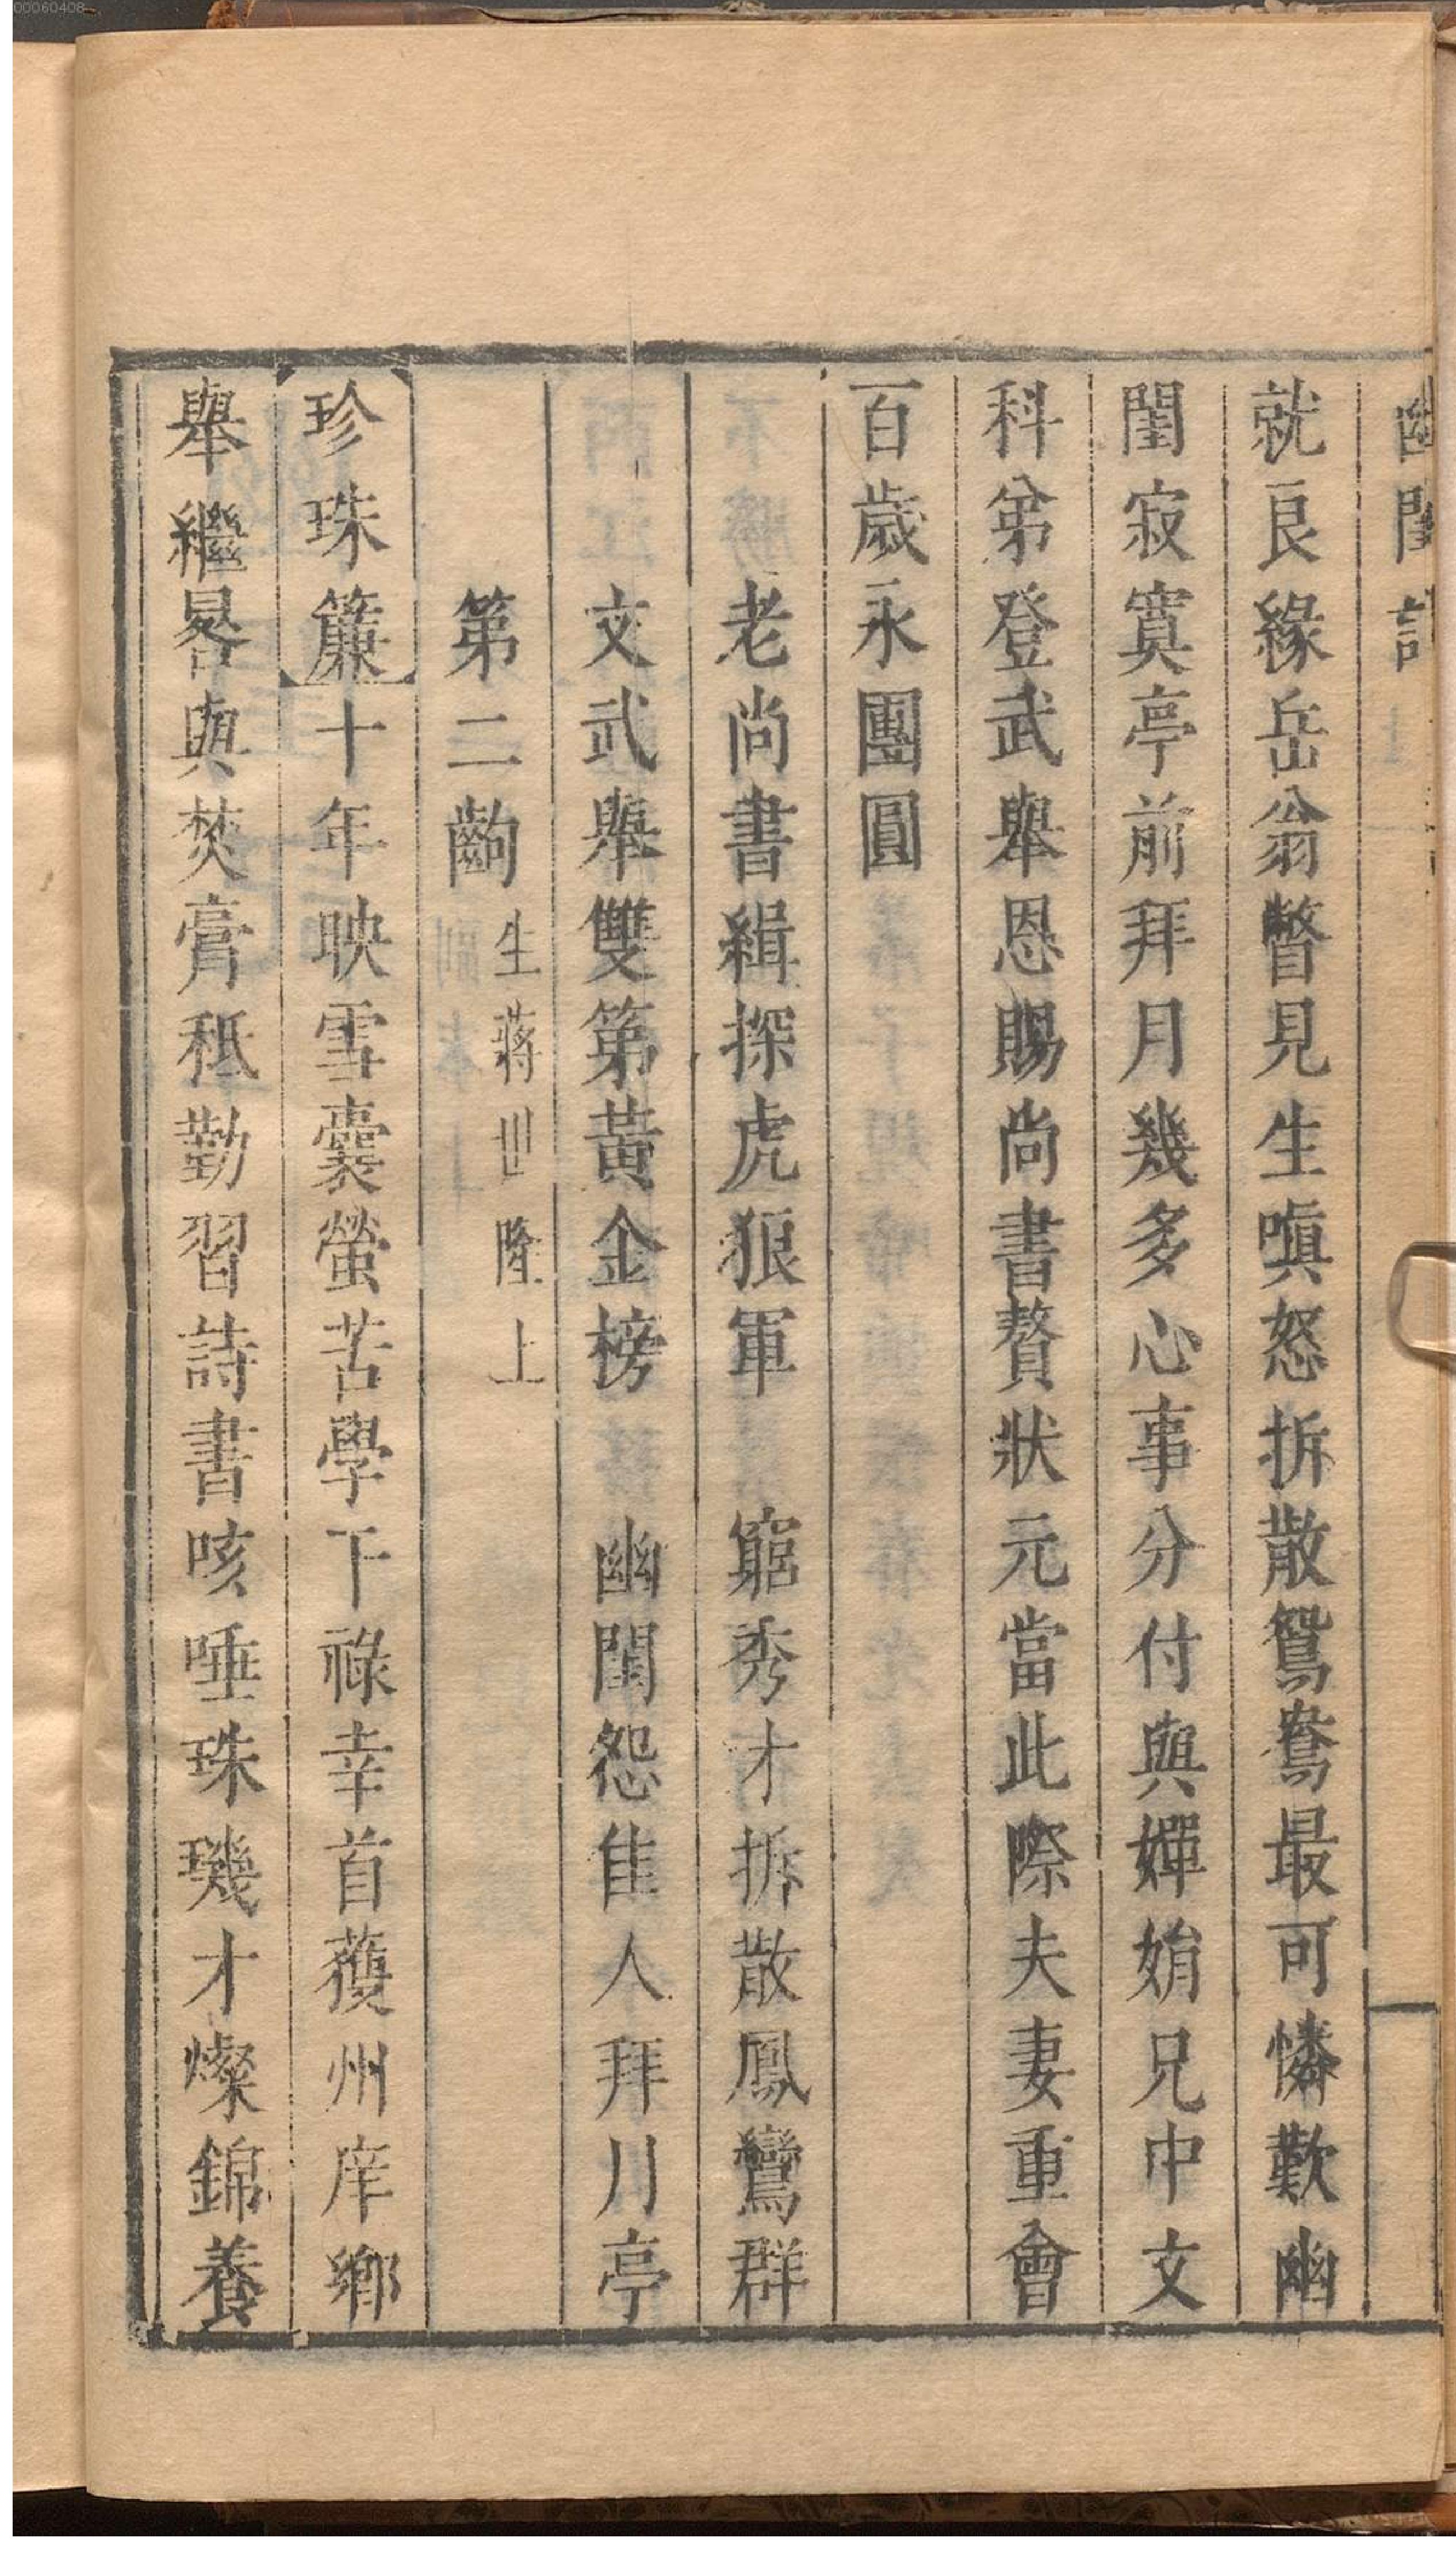 幽閨記
就良緣岳翁瞥見生嗔怒拆散鴛鴦最可憐歎幽
閨寂寞亭前拜月幾多心事分付與嬋娟兄中文
科弟登武舉恩賜尚書贅狀元當此際夫妻重會
百歲永團圓
老尚書緝探虎狼軍 窮秀才拆散鳳鸞群
文武舉雙第黃金榜 幽閨怨佳人拜月亭
第二齣 生蔣世隆上
珍珠簾 十年映雪囊螢苦學干祿幸首獲州庠鄉
舉繼晷與焚膏秪勤習詩書咳唾珠璣才燦錦養
00060408